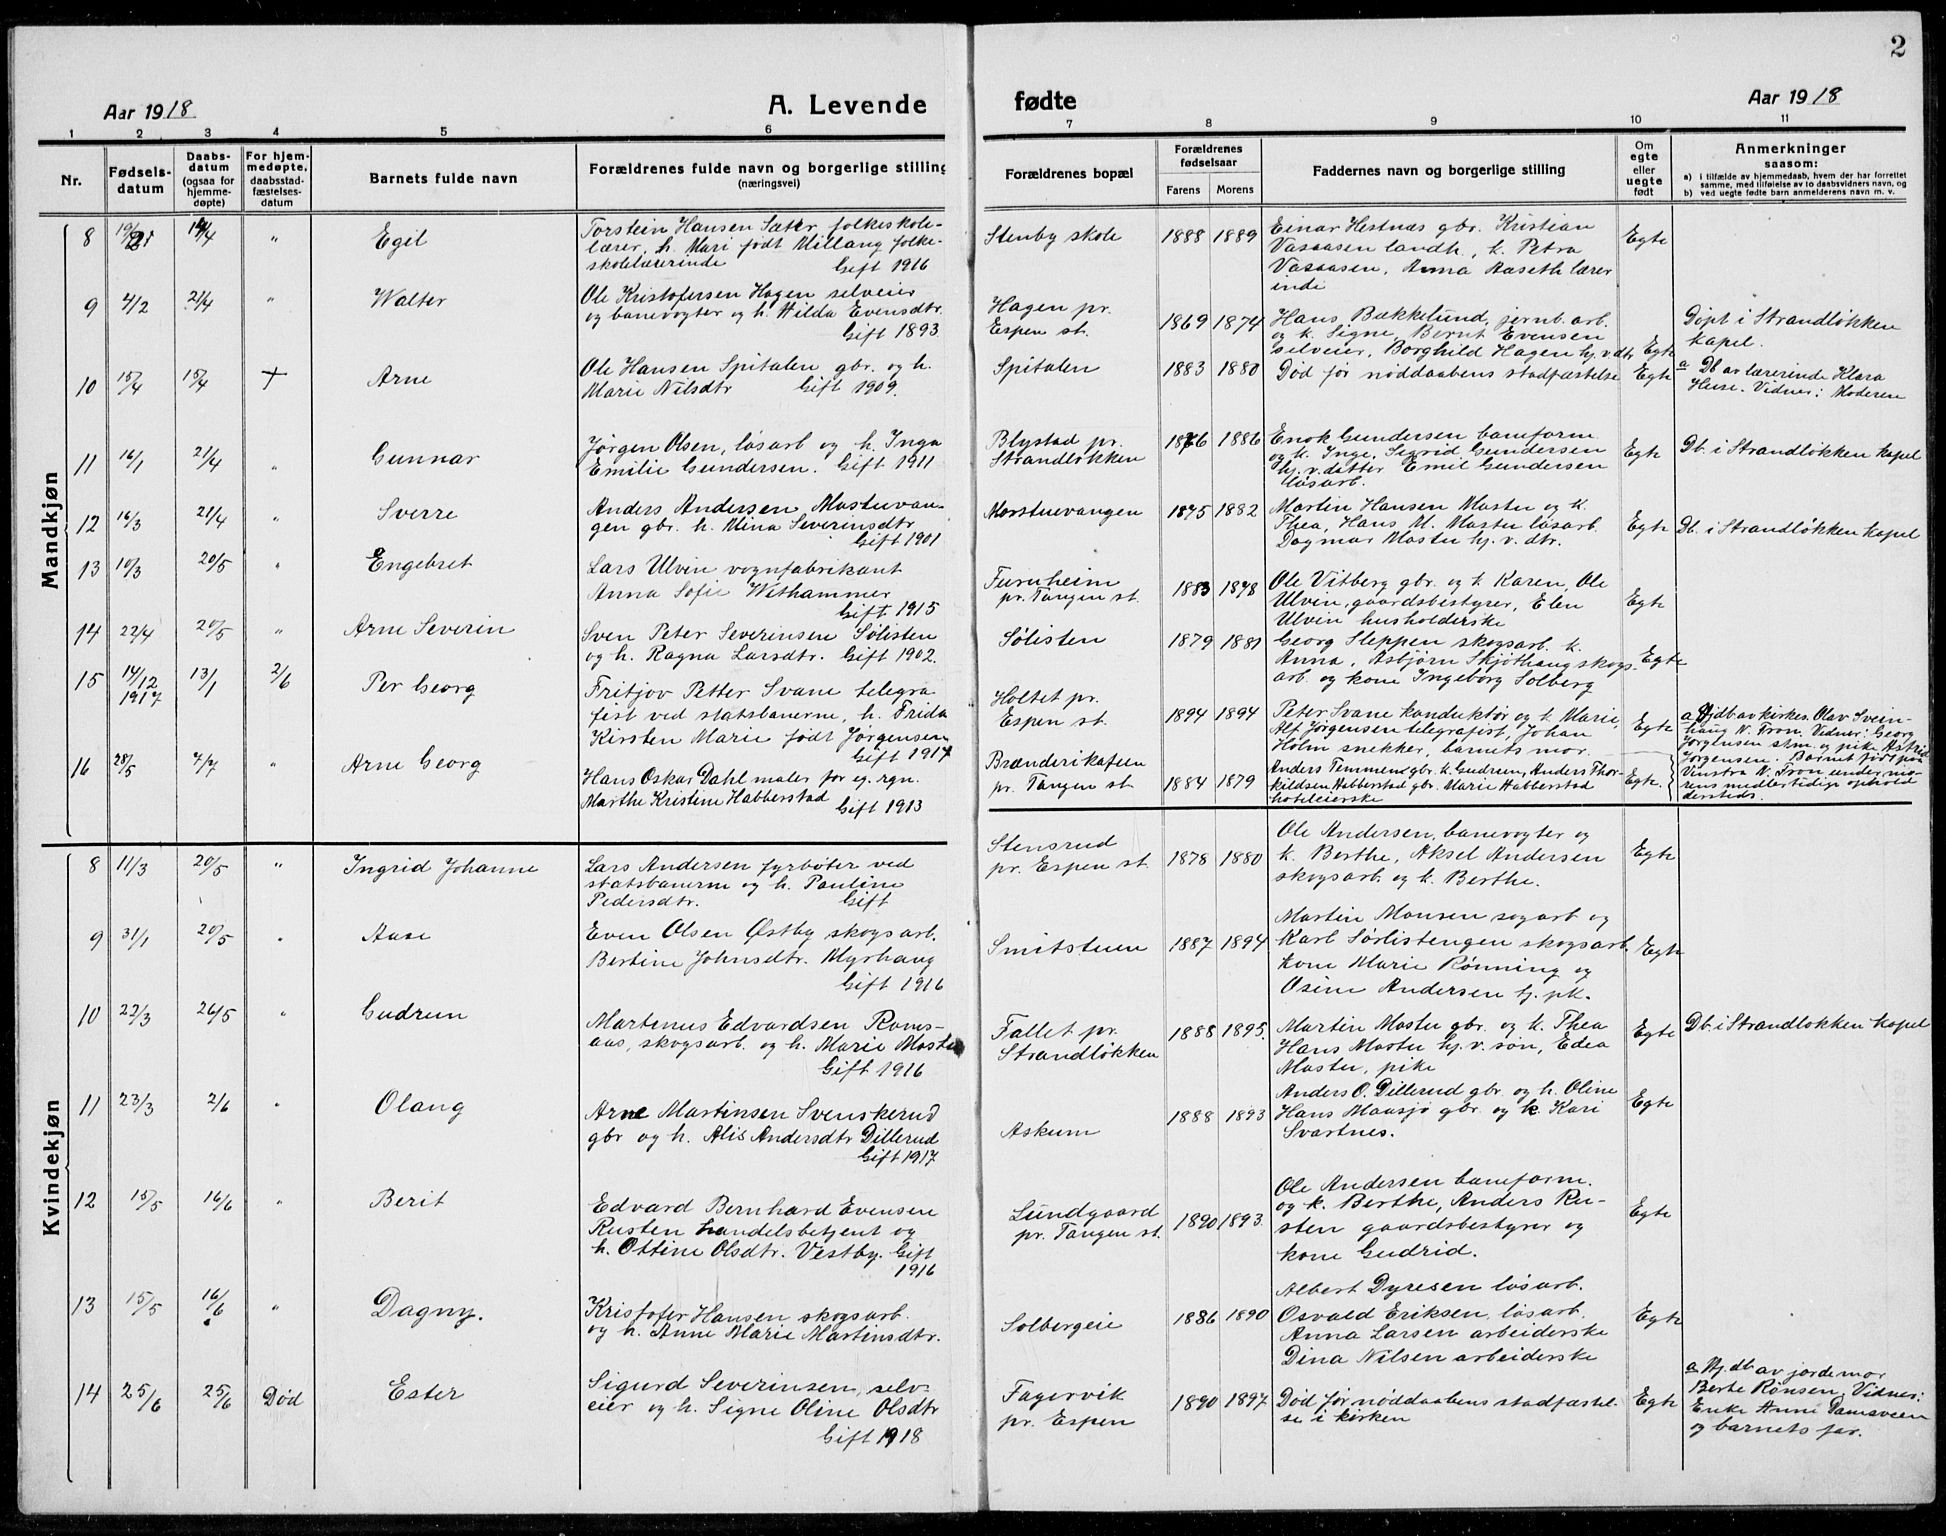 2
Aar 1918
A. Levende
fødte
Aar 1918
1 2 3 4 5 6 7 8 9 10 11
Nr.
Fødsels-
datum
Daabs-
datum
(ogsaa for
hjemme-
døpte)
For hjem-
medøpte,
daabsstad-
fæstelses-
datum
Barnets fulde navn
Forældrenes fulde navn og borgerlige stilling
(næringsvei)
Forældrenes bopæl
Forældrenes
fødselsaar
Farens Morens
Faddernes navn og borgerlige stilling
Om
egte
eller
uegte
født
Anmerkninger
saasom:
a) i tilfælde av hjemmedaab, hvem der har forrettet
samme, med tilføielse av to daabsvidners navn, og
b) ved uegte fødte barn anmelderens navn m. v.
Mandkjøn
8 14/4 " Egil
Torstein Hansen Sæter folkeskole-
lærer, h. Mari født Millang folke-
skolelærerinde Gift 1916
Stenby skole 1888 1889
Einar Hestnæs gbr. Kristian
Vasaasen landh., k. Petra
Vasaasen, Anna Aaseth lærer
inde
Egte
9 4/2 21/4 " Walter
Ole Kristofersen Hagen selveier
og banevogter og h. Hilda Evensdtr.
Gift 1893
Hagen pr.
Espen st.
1869 1874
Hans Bækkelund, jernb. arb.
og k. Signe, Bernt Evensen
selveier, Borghild Hagen hj. v. dtr
Egte
Døpt i Strandløkken
kapel.
10 15/4 15/4 + Arne
Ole Hansen Spitalen gbr. og h.
Marie Nilsdtr Gift 1909.
Spitalen 1883 1880
Død før nøddaabens stadfæstelse
Egte
a Db av lærerinde Klara
Huse. Vidner: Moderen
11 16/1 21/4 " Gunnar
Jørgen Olsen, løsarb og h. Inga
Emilie Gundersen. Gift 1911
Blystad pr.
Strandløkken
1876 1886
Enok Gundersen baneform.
og k. Inge, Sigrid Gundersen
hj. v. datter Emil Gundersen
løsarb.
Egte
Db. i Strandløkken kapel
12 16/3 21/4 " Sverre
Anders Andersen Mastuvan-
gen gbr. h. Mina Severinsdtr
Gift 1901
Morstuevangen 1875 1882
Martin Hansen Mastu og k.
Thea, Hans M. Mastu løsarb
Dagmar Mastu hj. v. dtr.
Egte
Db. i Strandløkken kapel
13 10/3 20/5 " Engebret
Lars Ulvin vognfabrikant
Anna Sofie Wethammer
Gift 1915
Furuheim
pr. Tangen st.
1883 1878
Ole Vitberg gbr. og k. Karen, Ole
Ulvin, gaardsbestyrer, Elen
Ulvin husholderske
Egte
14 22/4 20/5 " Arne Severin
Sven Peter Severinsen Sølisten
og h. Ragna Larsdtr. Gift 1902.
Sølisten 1879 1881
Georg Sleppen skogsarb. k.
Anna, Asbjørn Skjøthaug skogs-
arb. og kone Ingeborg Solberg
Egte
15 14/12 1917 13/1 2/6 Per Georg
Fritjov Petter Svane telegra
fist ved statsbanerne, h. Frida
Kirsten Marie født Jørgensen
Gift 1917
Holtet pr.
Espen st.
1894 1894
Peter Svane konduktør og k. Marie,
Alf Jørgensen telegrafist, Johan
Holm snekker, barnets mor.
Egte
a Hjdb. av kirkes. Olav Svein-
haug N. Fron. Vidner: Georg
Jørgensen stm. og pike Astrid
Jørgensen. Barnet født paa
Vinstra N. Fron under mo-
rens medlertidige ophold
dersteds.
16 28/5 7/7 " Arne Georg
Hans Oskar Dahl maler for eg. rgn.
Marthe Kristine Habberstad
Gift 1913
Brænderikafeen
pr. Tangen st.
1884 1879
Anders Temmen gbr. k. Gudrun, Anders Thor-
kildsen Habberstad gbr. Marie Habberstad
hoteleierske
Egte.
Kvindekjøn
8 11/3 20/5 " Ingrid Johanne
Lars Andersen fyrbøter ved
statsbanerne og h. Pauline
Pedersdtr. Gift
Stensrud
pr. Espen st.
1878 1880
Ole Andersen, banevogter og
k. Berthe, Aksel Andersen
skogsarb. og k. Berthe.
Egte
9 31/1 20/5 " Aase
Even Olsen Østby skogsarb.
Bertine Johnsdtr. Myrhaug
Gift 1916
Smitstuen 1887 1894
Martin Monsen sagarb og
Karl Sørlistengen skogsarb.
kone Marie Rønning og
Osine Andersen hj. pk.
Egte
10 22/3 26/5 " Gudrun
Martinus Edvardsen Roms-
aas, skogsarb. og h. Marie Mastu
Gift 1916
Fallet pr.
Strandløkken
1888 1895.
Martin Mastu gbr. og k. Thea
Hans Mastu hj. v. søn, Edea
Mastu, pike
Egte
Db. i Strandløkken kapel
11 23/3 2/6 " Olaug
Arne Martinsen Svenskerud
gbr og h. Alis Andersdtr Dillerud
Gift 1917
Askum 1888 1893
Anders O. Dillerud gbr. og h. Oline
Hans Maasjø gbr. og k Kari
Svartnes.
Egte
12 15/5 16/6 " Berit
Edvard Bernhard Evensen
Rusten handelsbetjent og
h. Ottine Olsdtr. Vestby. Gift
1916
Lundgaard
pr. Tangen st.
1890 1893.
Ole Andersen baneform.
og k. Berthe, Anders Ru-
sten gaardsbestyrer og
kone Gudrid.
Egte
13 15/5 16/6 " Dagny.
Kristofer Hansen skogsarb.
og h. Anne Marie Martinsdtr.
Solbergeie 1886 1890
Albert Dyresen løsarb.
Osvald Eriksen, løsarb.
Anna Larsen arbeiderske
Dina Nilsen arbeiderske
Egte
14 25/6 25/6 Død Ester
Sigurd Severinsen, selv-
eier og h. Signe Oline Olsdtr
Gift 1918
Fagervik
pr. Espen
1890 1897
Død før nøddaabens stadfæstel-
se i kirken
Egte
a Hj. db. av jordemor
Berte Rønsen. Vidner:
Enke Anne Damsveen
og barnets far.